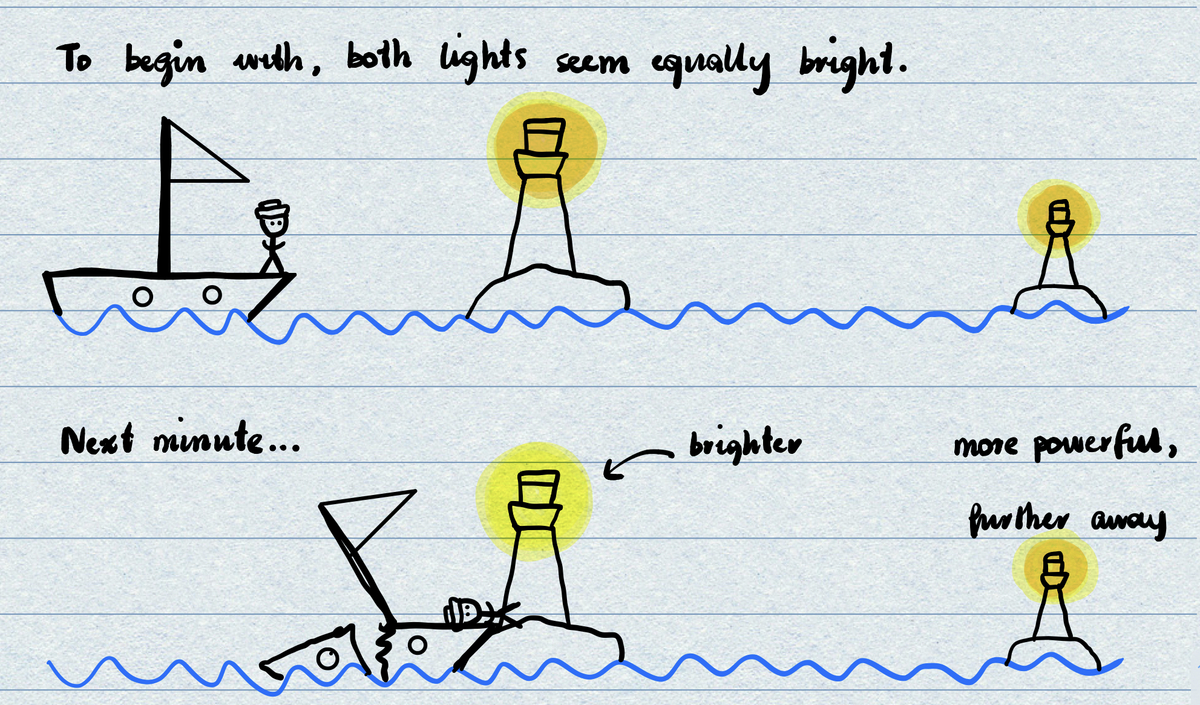 To begin with, both lights seem equally bright.
Next minute...
brighter
more powerful,
further away